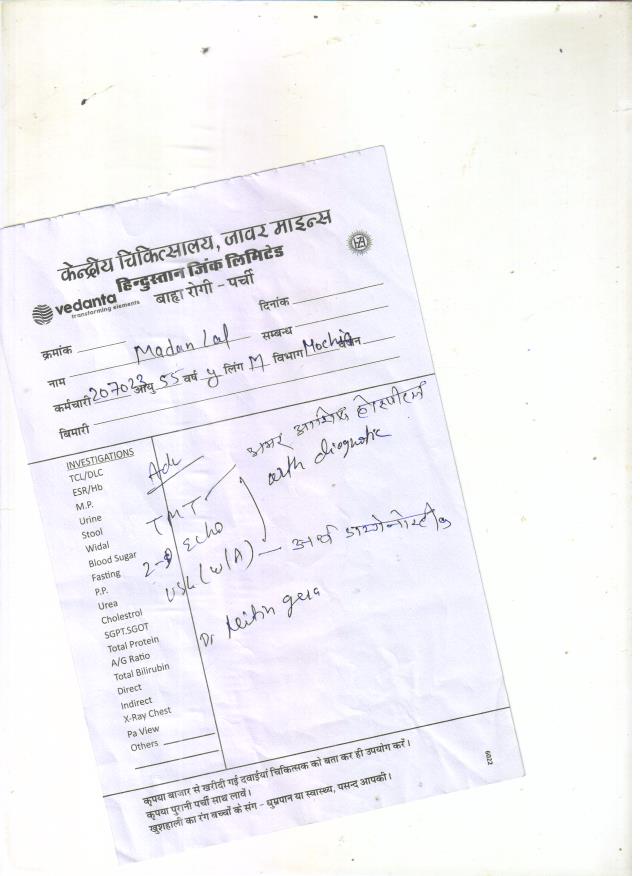 केन्द्रीय चिकित्सालय, जावर माइन्स
हिन्दुस्तान जिंक लिमिटेड
vedanta
transforming elements
बाह्य रोगी - पर्ची
क्रमांक दिनांक
नाम Madan Lal सम्बन्ध
कर्मचारी 207023 आयु 55 वर्ष y लिंग M विभाग Mochia वजन
बिमारी
INVESTIGATIONS
TCL/DLC
ESR/Hb
M.P.
Urine
Stool
Widal
Blood Sugar
Fasting
P.P.
Urea
Cholestrol
SGPT.SGOT
Total Protein
A/G Ratio
Total Bilirubin
Direct
Indirect
X-Ray Chest
Pa View
Others
Adv
TMT
2-D Echo
अमर आशिष होस्पीटल
arth diagnostic
USG (W/A) — अर्थ डायग्नोस्टीक
Dr Nitin
कृपया बाजार से खरीदी गई दवाईयां चिकित्सक को बता कर ही उपयोग करें।
कृपया पुरानी पर्ची साथ लावें।
खुशहाली का रंग बच्चों के संग - धुम्रपान या स्वास्थ्य, पसन्द आपकी।
6022